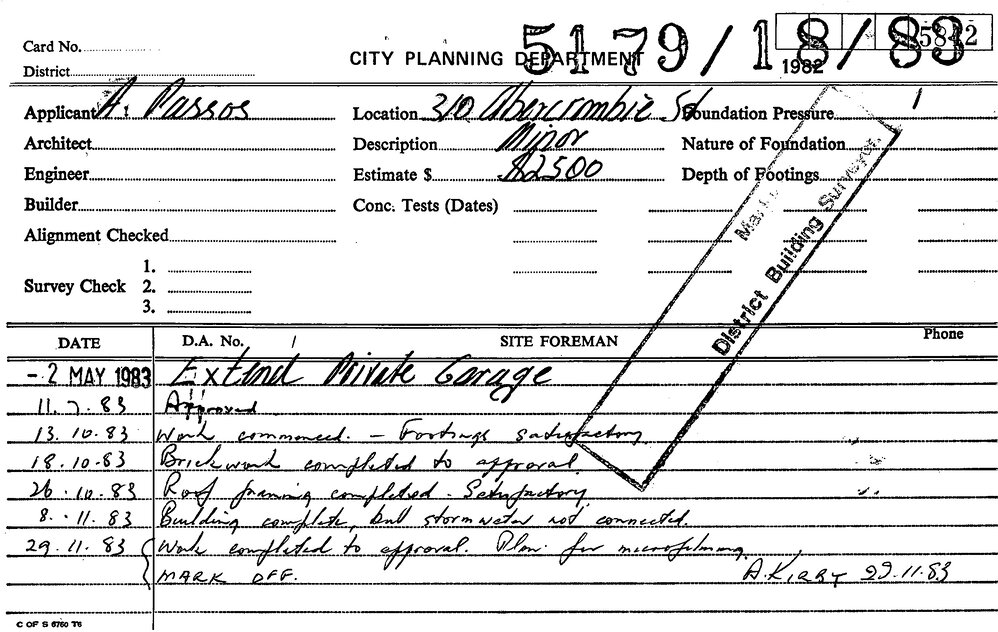 5179/18/83
5842
Card No.
CITY PLANNING DEPARTMENT
1982
District
Applicant A. Passos Location 310 Abercrombie St Foundation Pressure
Architect Description Minor Nature of Foundation
Engineer Estimate $ $2500 Depth of Footings
Builder Conc. Tests (Dates)
Alignment Checked
Survey Check 1.
2.
3.
District Building Surveyor.
DATE D.A. No. SITE FOREMAN Phone
- 2 MAY 1983 Extend Private Garage
11.7.83 Approved
13.10.83 Work commenced. - Footings satisfactory
18.10.83 Brickwork completed to approval.
26.10.83 Roof framing completed - Satisfactory
8.11.83 Building complete, but stormwater not connected.
29.11.83 Work completed to approval. Plan for microfilming
MARK OFF. A. KIRBY 29.11.83
C OF S 6760 T6